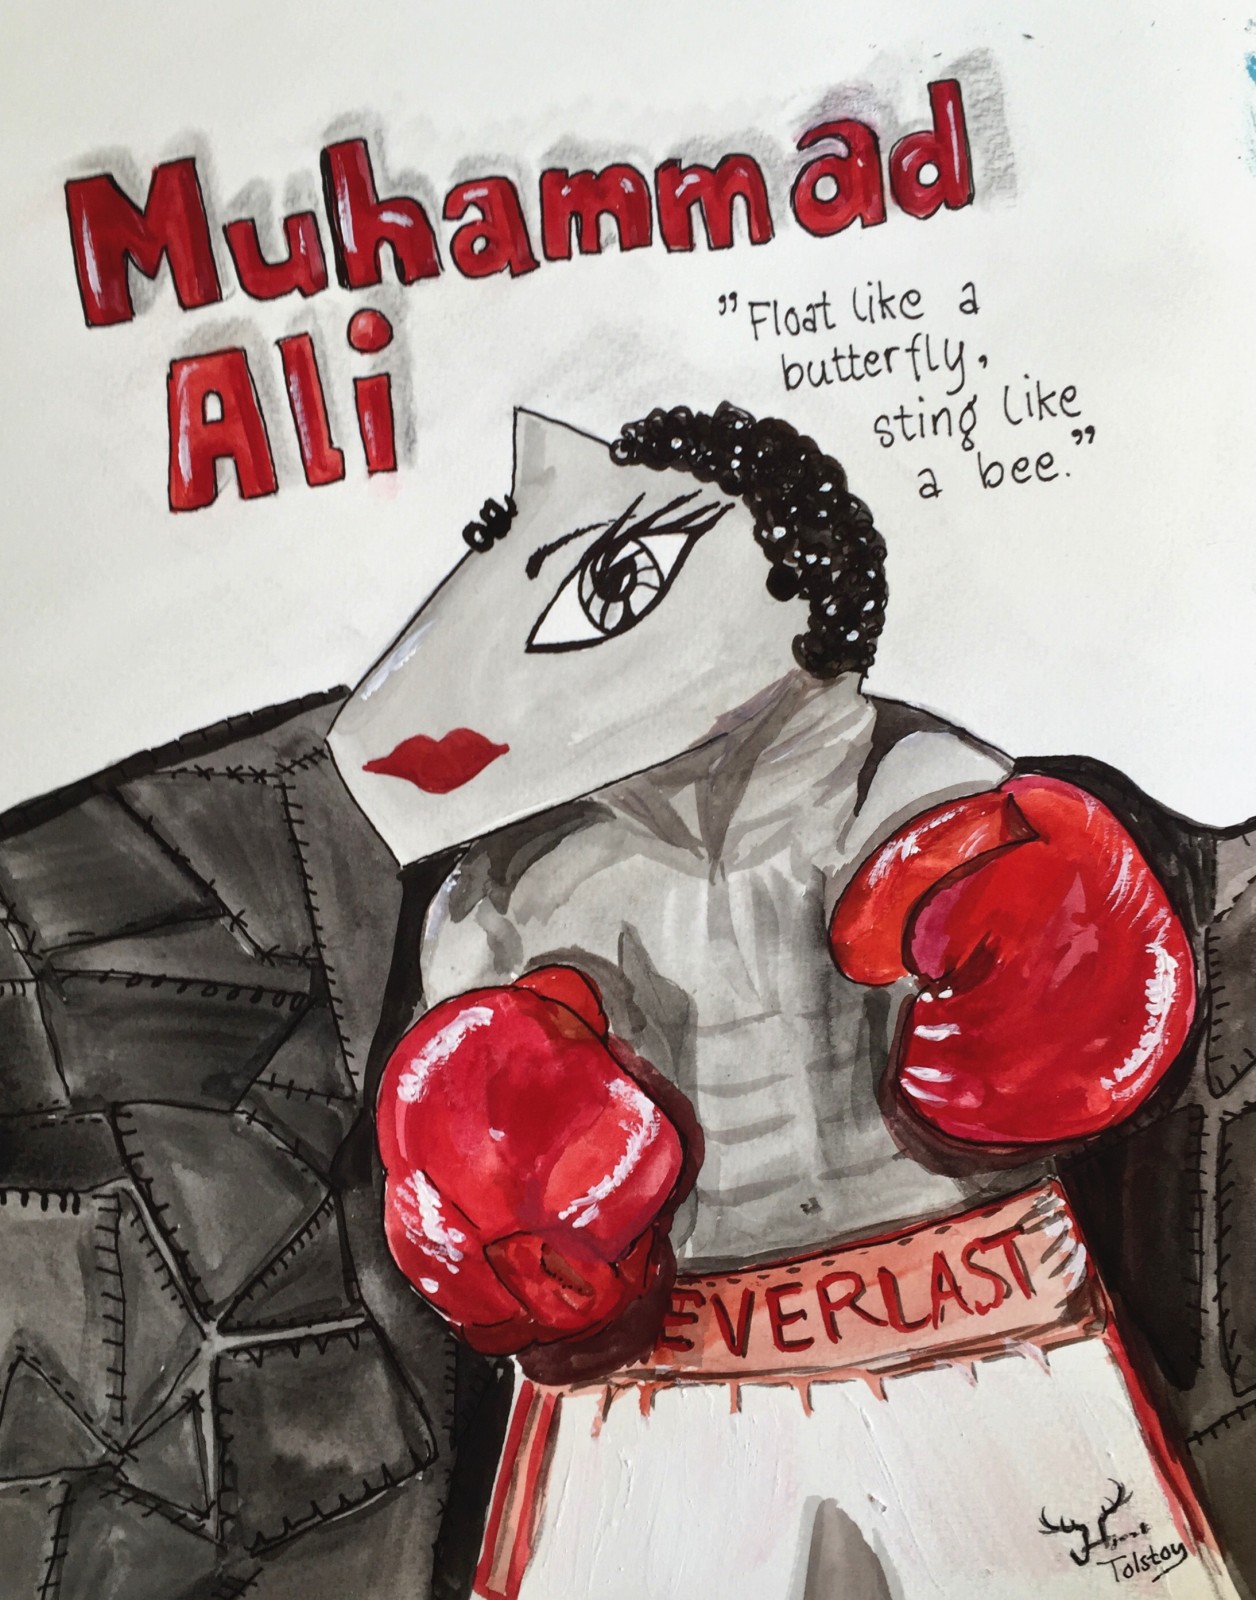 Muhammad
Ali
"Float like a
butterfly,
sting like
a bee."
EVERLAST
Tolstoy